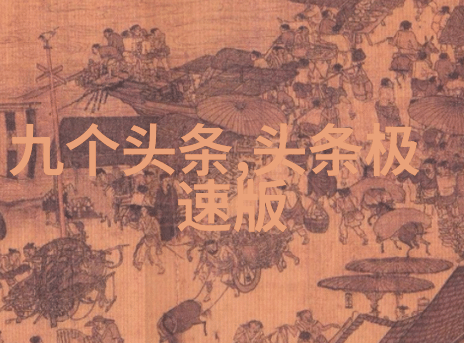 九个头条,头条极
速版